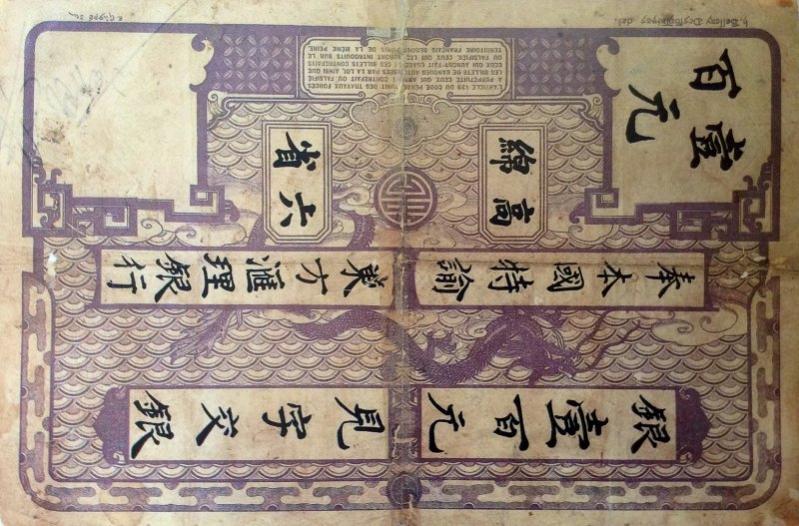 壹百元
高綿
六省
奉本國特諭
東方滙理銀行
銀壹百元
見字交銀
L'ARTICLE 139 DU CODE PÉNAL PUNIT DES TRAVAUX FORCÉS
A PERPÉTUITÉ CEUX QUI AURONT CONTREFAIT OU FALSIFIÉ
LES BILLETS DE BANQUES AUTORISÉES PAR LA LOI, AINSI QUE
CEUX QUI AURONT FAIT USAGE DE CES BILLETS CONTREFAITS
OU FALSIFIÉS. CEUX QUI LES AURONT INTRODUITS SUR LE
TERRITOIRE FRANÇAIS SERONT PUNIS DE LA MÊME PEINE.